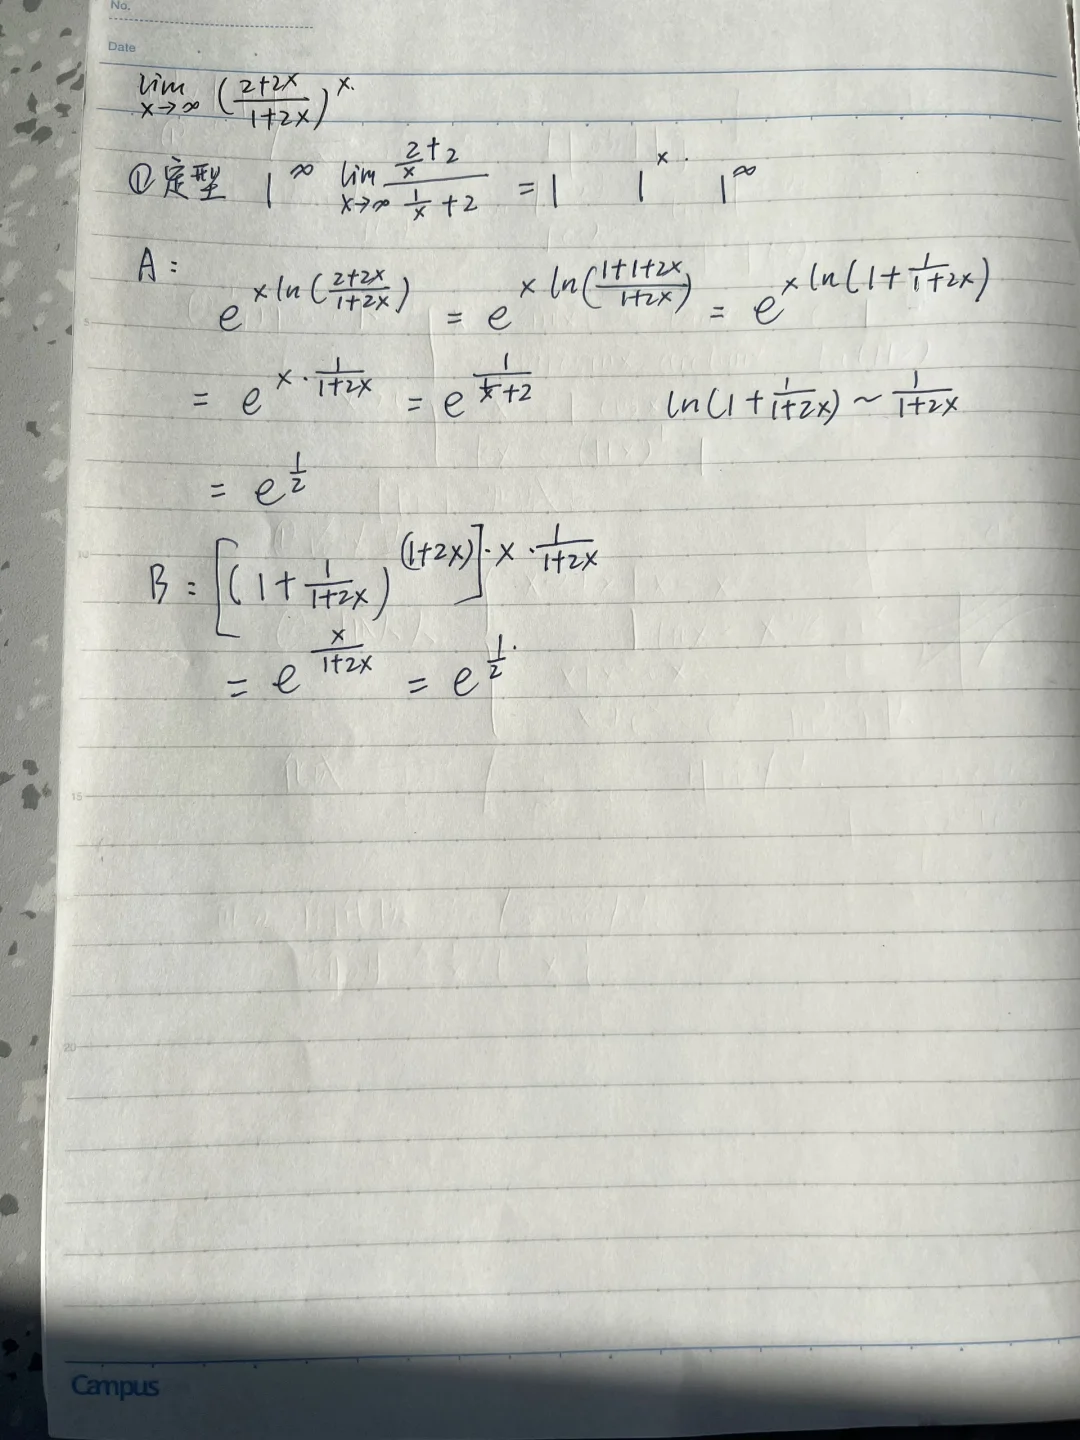 No.
Date
lim x→∞ (2+2x / 1+2x)^x.
①定型 1^∞ lim x→∞ (2/x + 2) / (1/x + 2) = 1 1^x. 1^∞
A: e^(x ln(2+2x / 1+2x)) = e^(x ln(1+1+2x / 1+2x)) = e^(x ln(1+ 1/1+2x))
= e^(x · 1/1+2x) = e^(1 / (1/x + 2)) ln(1+ 1/1+2x) ~ 1/1+2x
= e^(1/2)
B: [(1+ 1/1+2x)^(1+2x)]·x · 1/1+2x
= e^(x/1+2x) = e^(1/2).
5
10
15
20
Campus